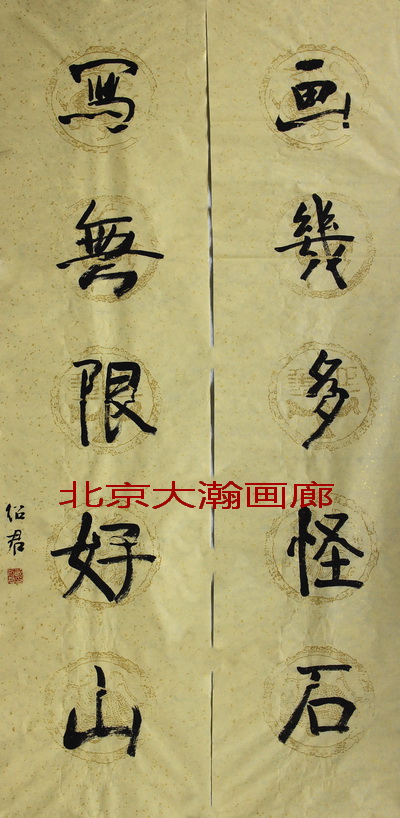 画幾多怪石
寫無限好山
绍君
北京大瀚画廊